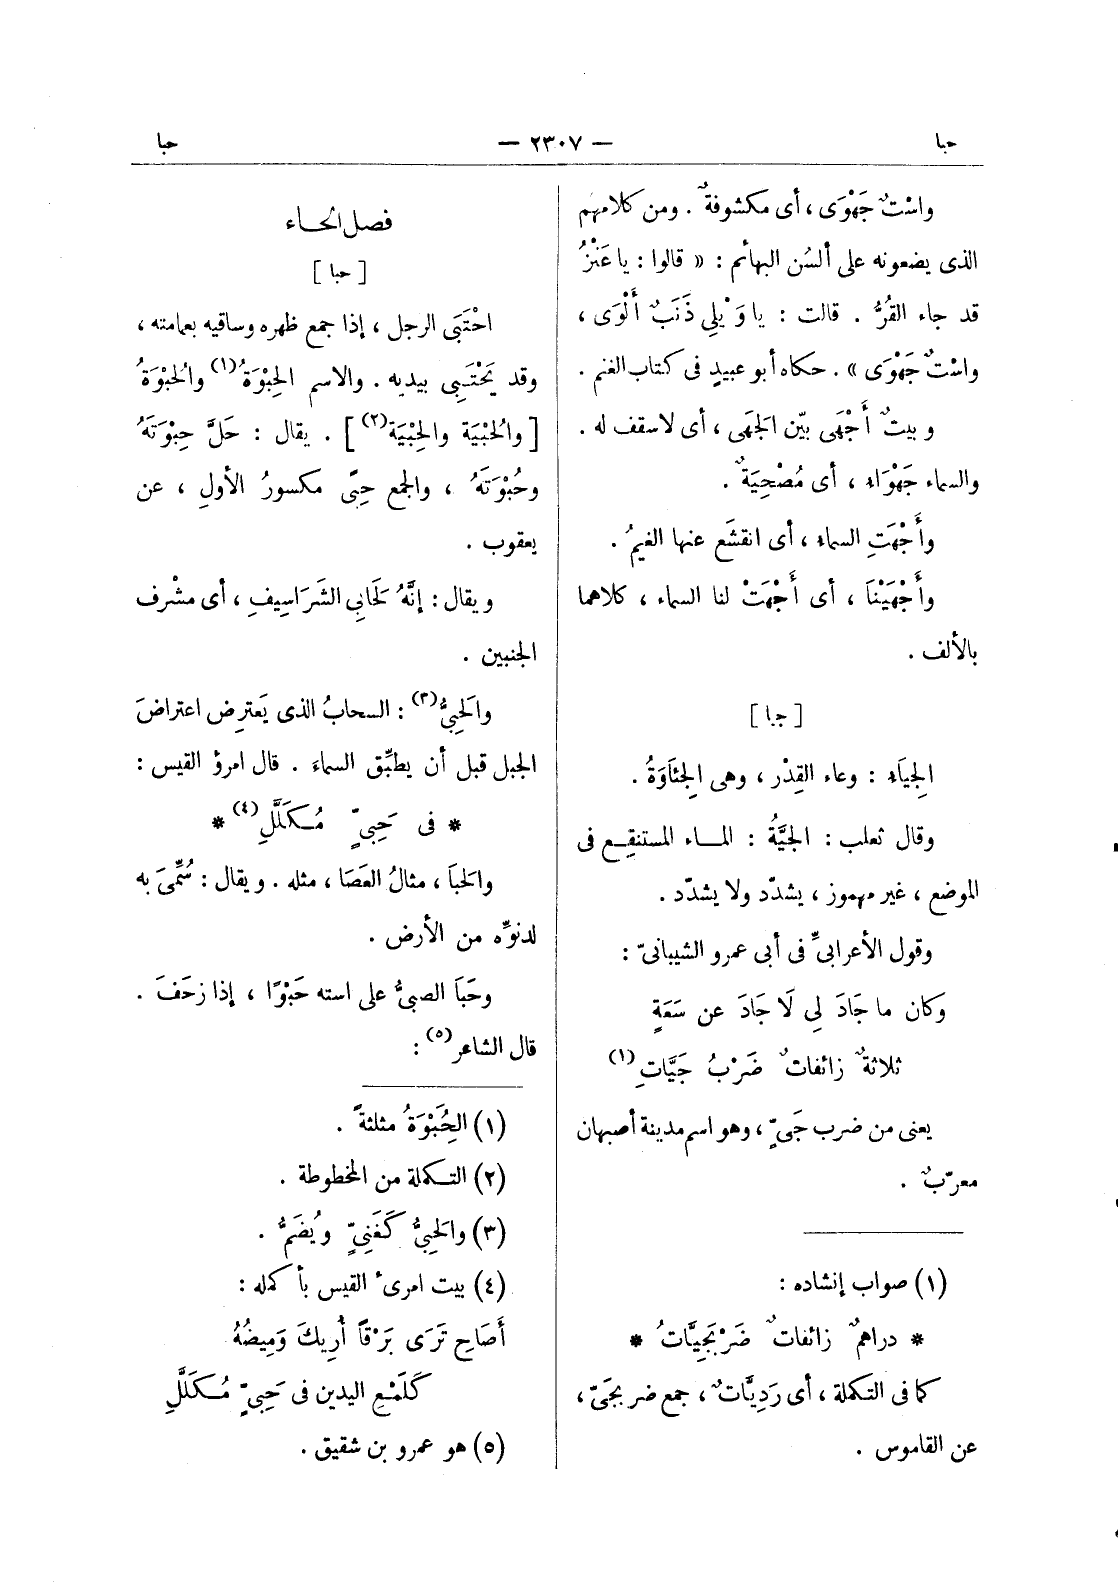 حبا — ٢٣٠٧ — حبا
واسْتٌ جَهْوَى ، أى مكشوفةٌ . ومن كلامهم
الذى يضعونه على ألسُن البهائم : « قالوا : يا عَنْزُ
قد جاء القُرُّ . قالت : يا وَيْلِى ذَنَبٌ أَلْوَى ،
واسْتٌ جَهْوَى » . حكاه أبو عبيدٍ فى كتاب الغنم .
و بيتٌ أَجْهَى بيّن الجَهَى ، أى لا سقف له .
والسماء جَهْوَاء ، أى مُصْحِيَةٌ .
وأَجْهَتِ السماء ، أى انقشَع عنها الغيمُ .
وأَجْهَيْنَا ، أى أَجْهَتْ لنا السماء ، كلاهما
بالألف .
[ جيا ]
الجِيَاء : وعاء القِدْر ، وهى الجِئَاوَةُ .
وقال ثعلب : الجِيَّةُ : المـاء المستنقِـع فى
الموضع ، غير مهموز ، يشدّد ولا يشدّد .
وقول الأعرابىِّ فى أبى عمرو الشيبانىّ :
وكان ما جَادَ لِى لَا جَادَ عن سَعَةٍ
ثلاثةٌ زائفاتٌ ضَرْبُ جَيَّاتِ (١)
يعنى من ضرب جَىٍّ ، وهو اسم مدينة أصبهان
معرّبٌ .
(١) صواب إنشاده :
* دراهمٌ زائفاتٌ ضَرْبَجِيَّاتُ *
كما فى التكملة ، أى رَدِيَّاتٌ ، جمع ضربجَىّ ،
عن القاموس .
فصل الحـاء
[ حبا ]
احْتَبَى الرجل ، إذا جمع ظهره وساقيه بعمامته ،
وقد يَحْتَـبِى بيديه . والاسم الحِبْوَةُ (١) والحُبْوَةُ
[ والحُبْيَة والحِبْيَة (٢) ] . يقال : حَلَّ حِبْوَتَهُ
وحُبْوَتَهُ ، والجمع حِبًى مكسورُ الأولِ ، عن
يعقوب .
و يقال : إنَّهُ لَحَابِى الشَرَاسِيفِ ، أى مشْرف
الجنبين .
والحَبِىُّ (٣) : السحابُ الذى يَعترِض اعتراضَ
الجبل قبل أن يطبِّق السماءَ . قال امرؤ القيس :
* فى حَبِىٍّ مُـكَلَّلِ (٤) *
والحَبَا ، مثالُ العَصَا ، مثله . و يقال : سُمِّىَ به
لدنوِّه من الأرض .
وحَبَا الصبىُّ على استه حَبْوًا ، إذا زحَفَ .
قال الشاعر (٥) :
(١) الحُِبْوَةُ مثلثةً .
(٢) التـكملة من المخطوطة .
(٣) والحَبِىُّ كَغَنِىٍّ ويُضَمُّ .
(٤) بيت امرئ القيس بأكمله :
أَصَاحِ تَرَى بَرْقًا أُرِيكَ وَمِيضَهُ
كَلَمْـعِ اليدين فى حَبِىٍّ مُـكَلَّلِ
(٥) هو عمرو بن شقيق .